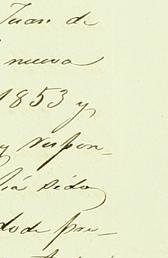 Juan de
nueva
1853 y
y respon-
ía sido
do de pre-